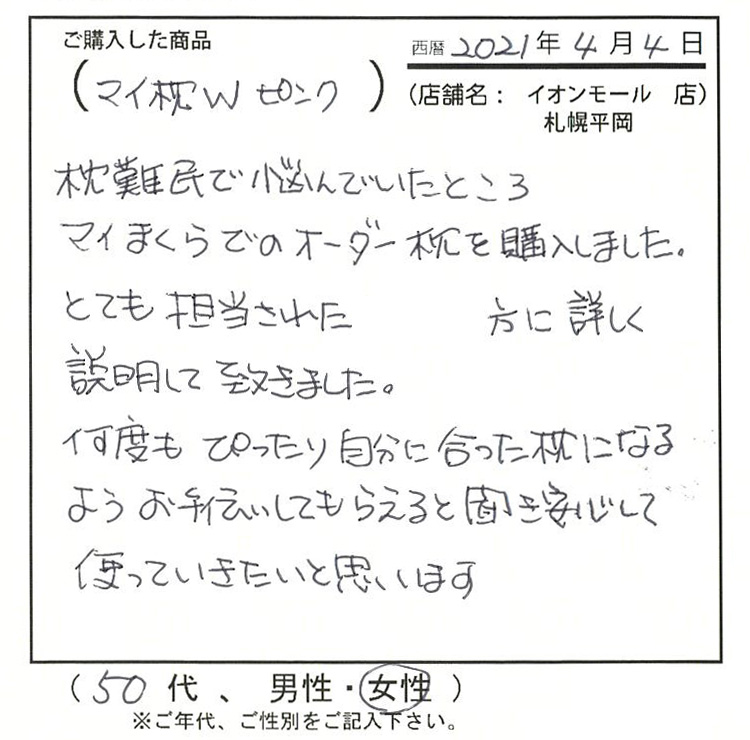 ご購入した商品
西暦 2021年 4月 4日
(マイ枕W ピンク)
(店舗名： イオンモール 店)
札幌平岡
枕難民で悩んでいたところ
マイまくらでのオーダー枕を購入しました。
とても担当された 方に詳しく
説明して致きました。
何度も ぴったり自分に合った枕になる
よう お手伝いしてもらえると聞き安心して
使っていきたいと思います
( 50 代 、 男性・女性 )
※ご年代、ご性別をご記入下さい。